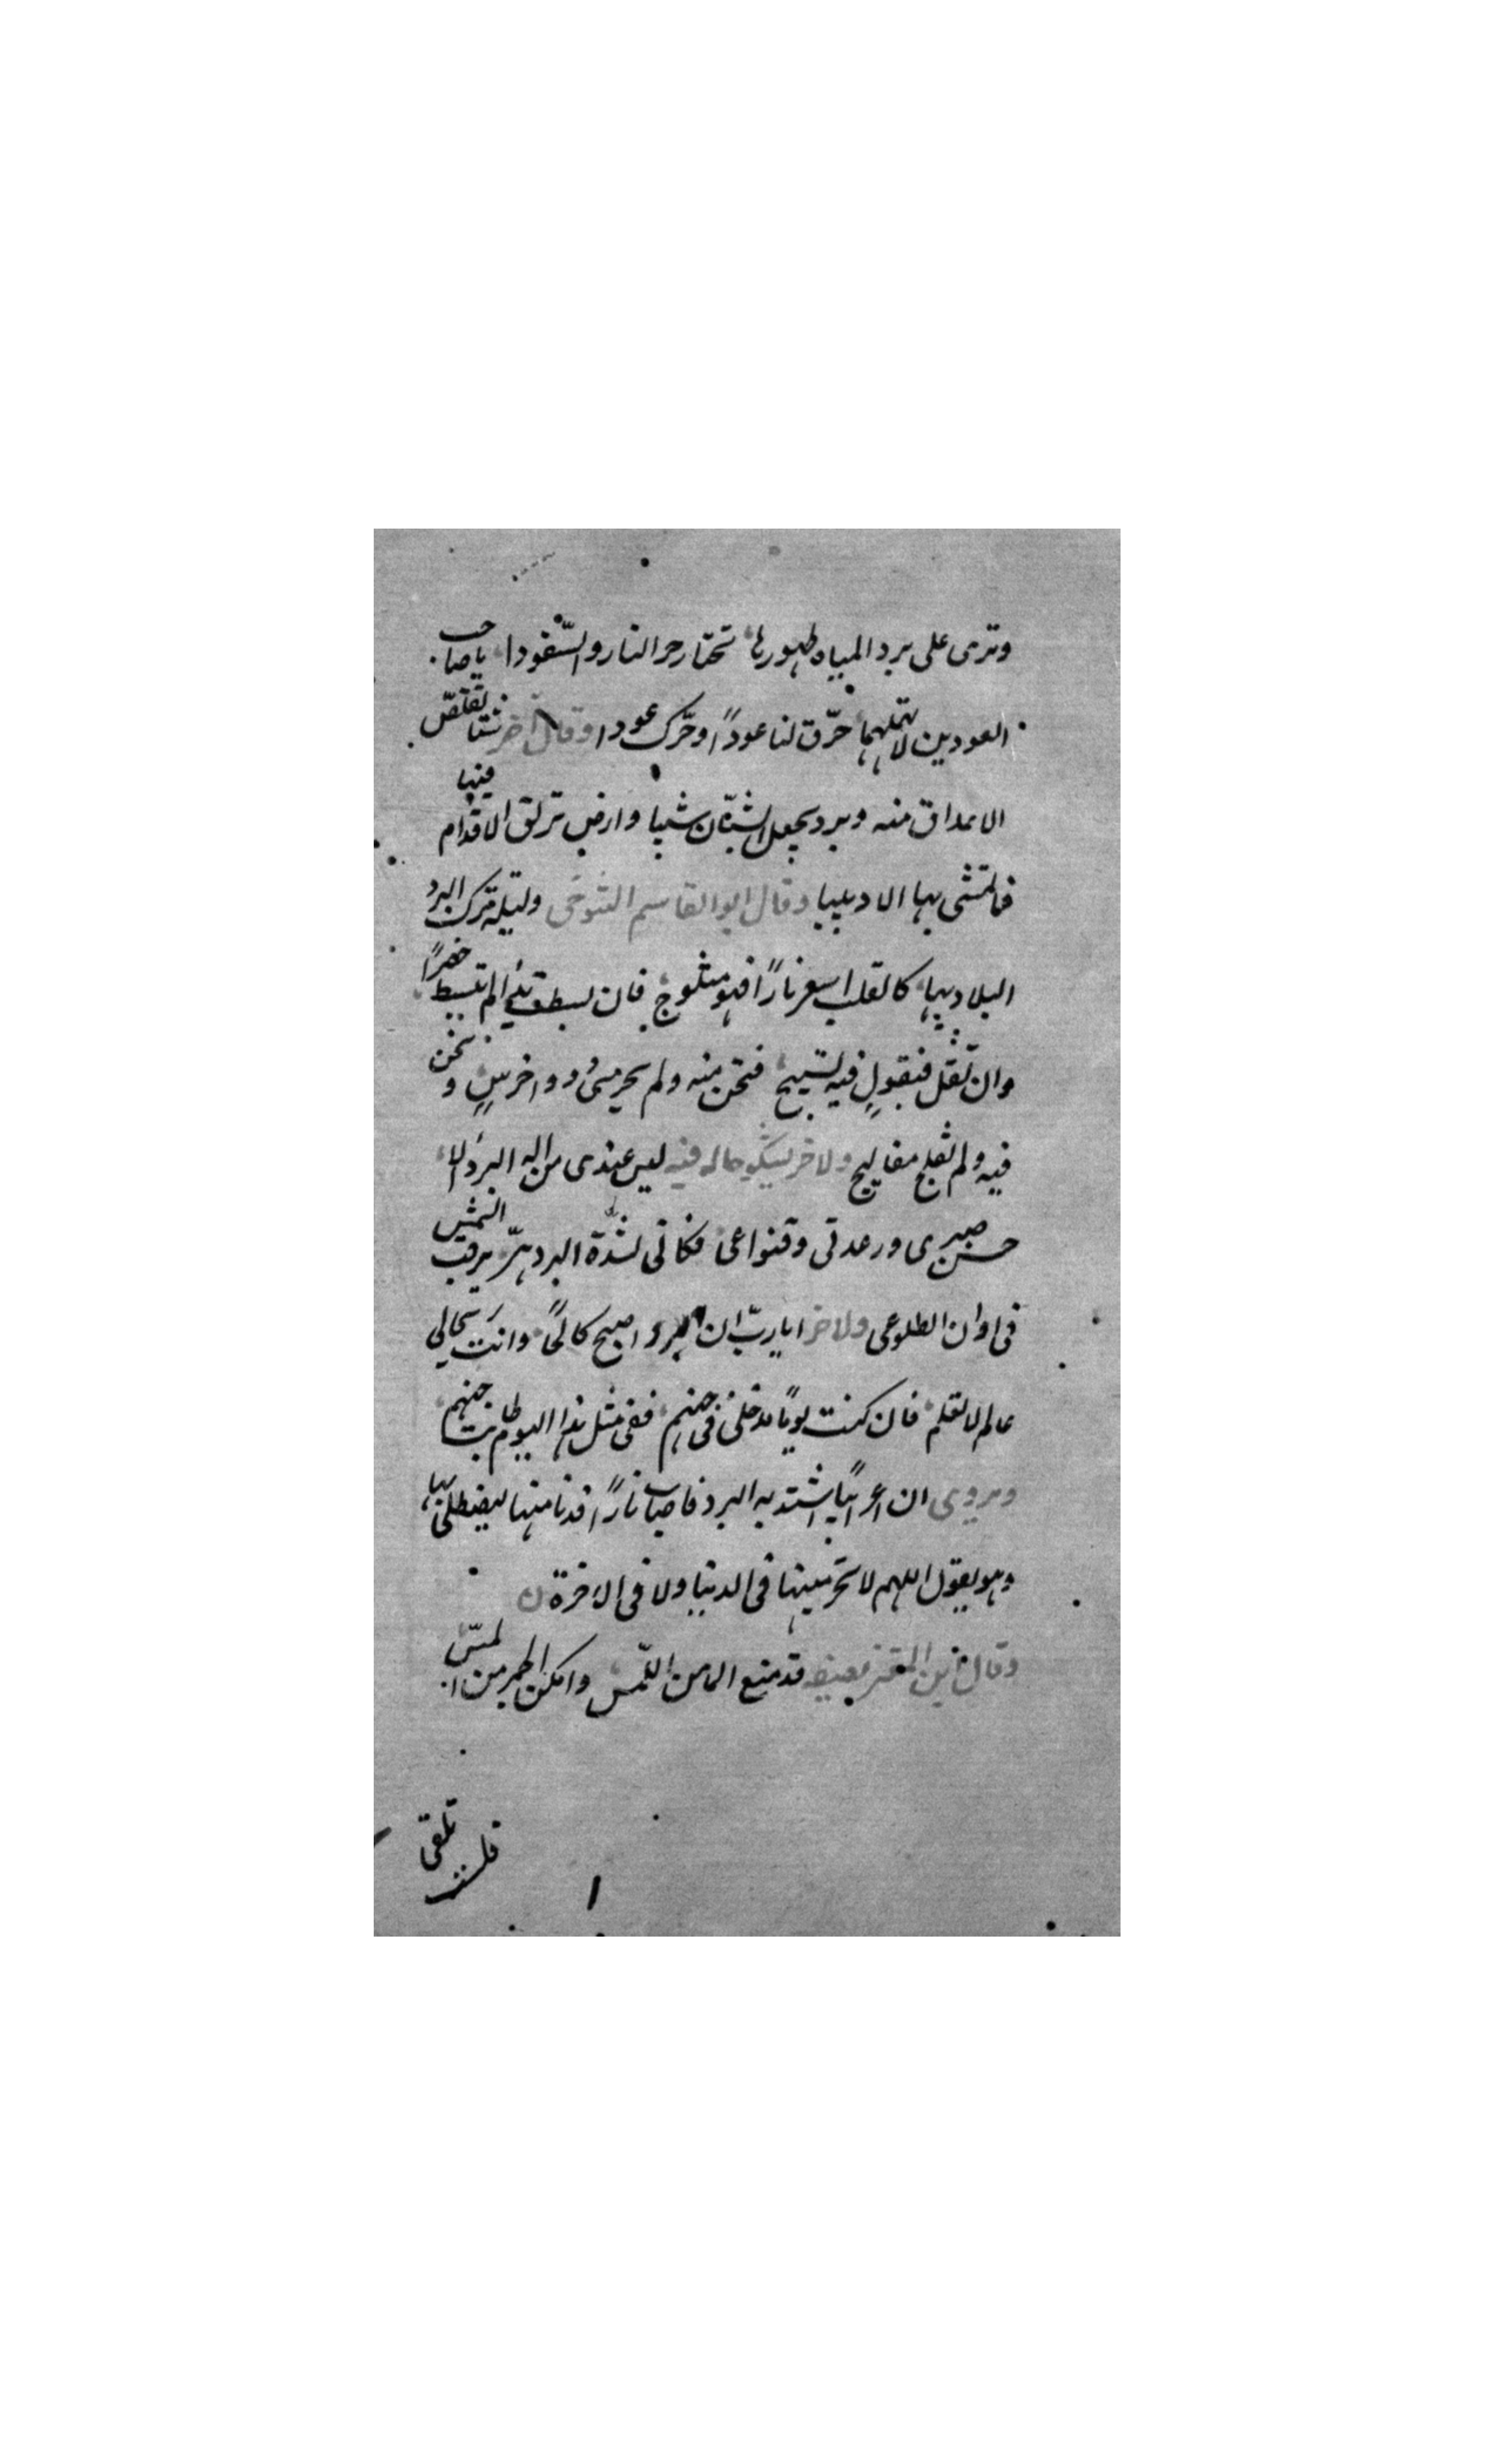 وترى على برد المياه طيورها تختار حر النار والسّفودا ياصاحب
العودين لا تهملهما حرّق لنا عودًا وحرّك عودا وقال آخر شتا تقلّص
الاعداق منه وبرد يجعل الشبّان شيبا وارض تزلق الاقدام فيها
فما تمشى بها الا دبيبا وقال ابو القاسم التنوخى وليلة ترك البرد
البلاد بها كالقلب اسعر نارًا فهو مثلوج فان بسطت يدًا لم تنبسط خصرًا
وان تقل فبقولٍ فيه تشبيج فنحن منه ولم نخرس ذوو اخرسٍ ونحن
فيه ولم نفلج مفاليج ولاخر يشكو حاله فيه ليس عندى من الة البرد الا
حسن صبرى ورعدتى وقنوعى فكانى لشدّة البرد هرّ يرقب الشمس
فى اوان الطلوعى ولاخر ايا ربّ ان البرد اصبح كالحًا وانت بحالى
عالم لا تعلم فان كنت يومًا مدخلى فى جهنم ففى مثل هذا اليوم طابت جهنم
ويروى ان اعرابيًا اشتد به البرد فاصاب نارًا فدنا منها ليصطلى بها
وهو يقول اللهم لا تحرمنيها فى الدنيا ولا فى الاخرة
وقال ابن المعتز يصفه قد منع الماء من اللمس وامكن الجمر من المسّ
فلست تلقى